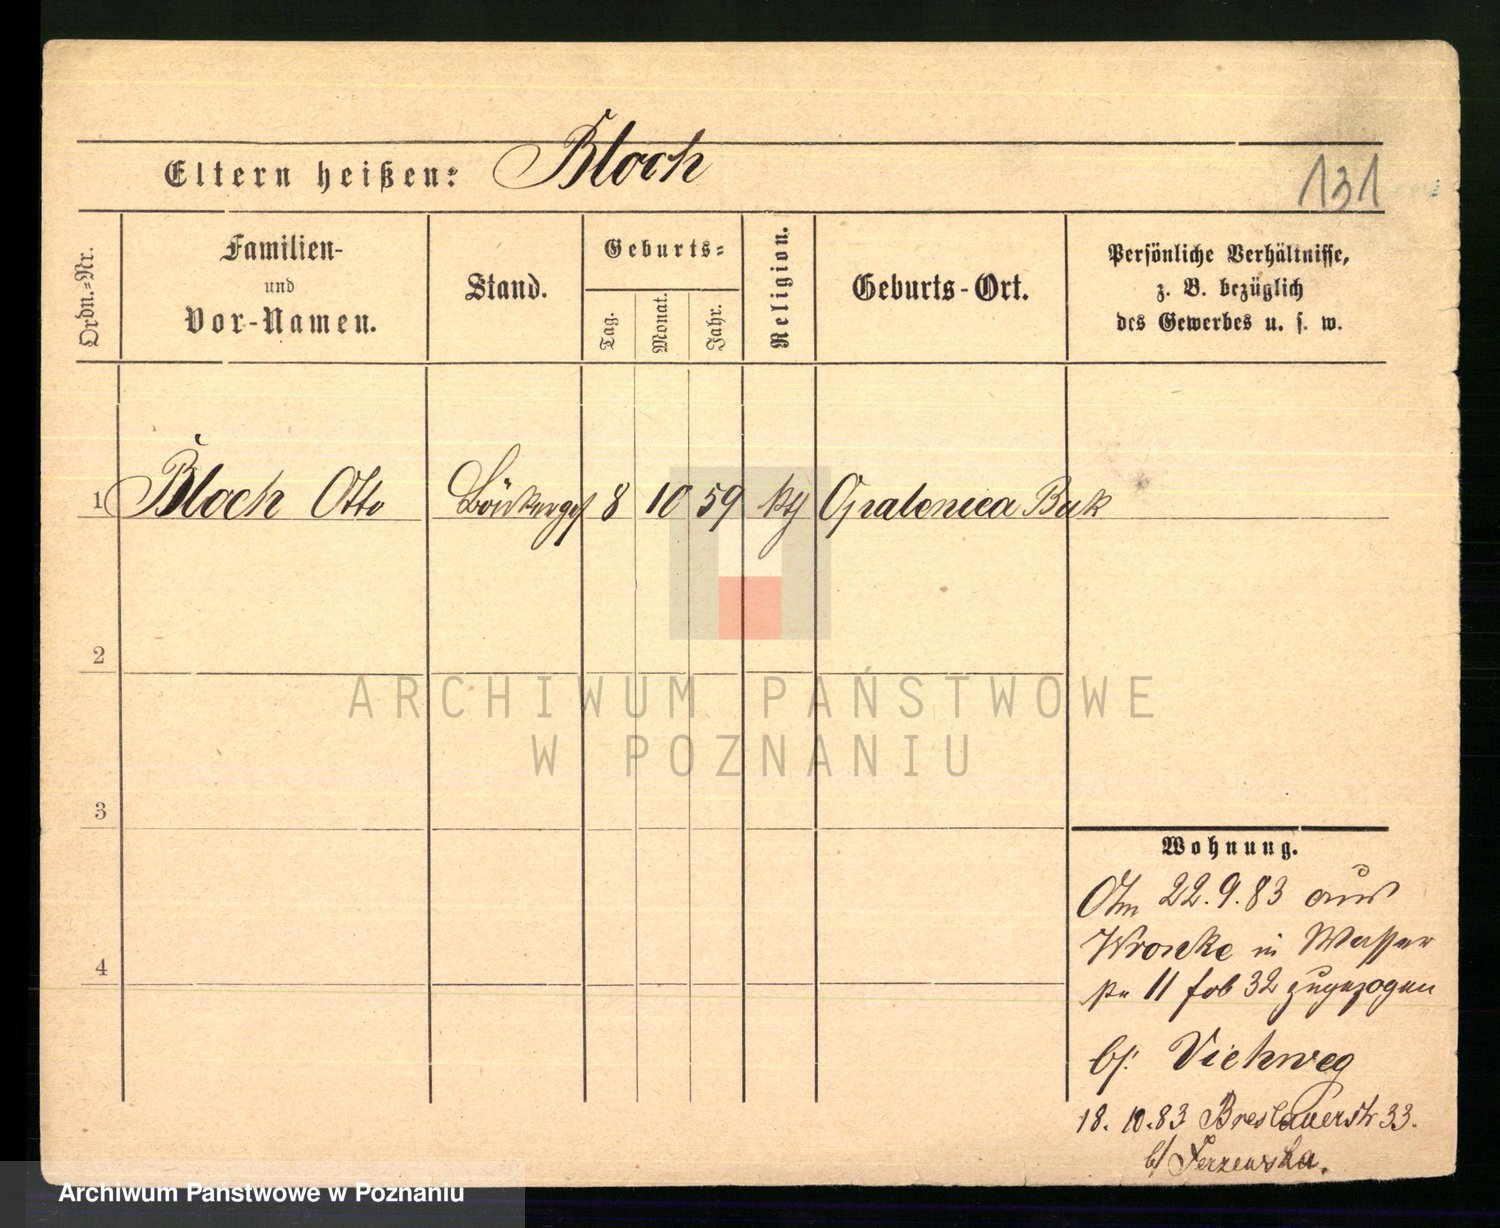 Eltern heißen: Bloch
131
Ordn.-Nr.
Familien-
und
Vor-Namen.
Stand.
Geburts-
Tag.
Monat.
Jahr.
Religion.
Geburts-Ort.
Persönliche Verhältnisse,
z. B. bezüglich
des Gewerbes u. s. w.
1 Bloch Otto Böttcherges 8 10 59 kth Opalenica Buk
2
ARCHIWUM PAŃSTWOWE
W POZNANIU
3
Wohnung.
Am 22.9.83 aus
Wronke in Wasser
str 11 fob 32 zugezogen
4
bj. Viehweg
18. 10. 83 Breslauerstr 33.
b/
Archiwum Państwowe w Poznaniu